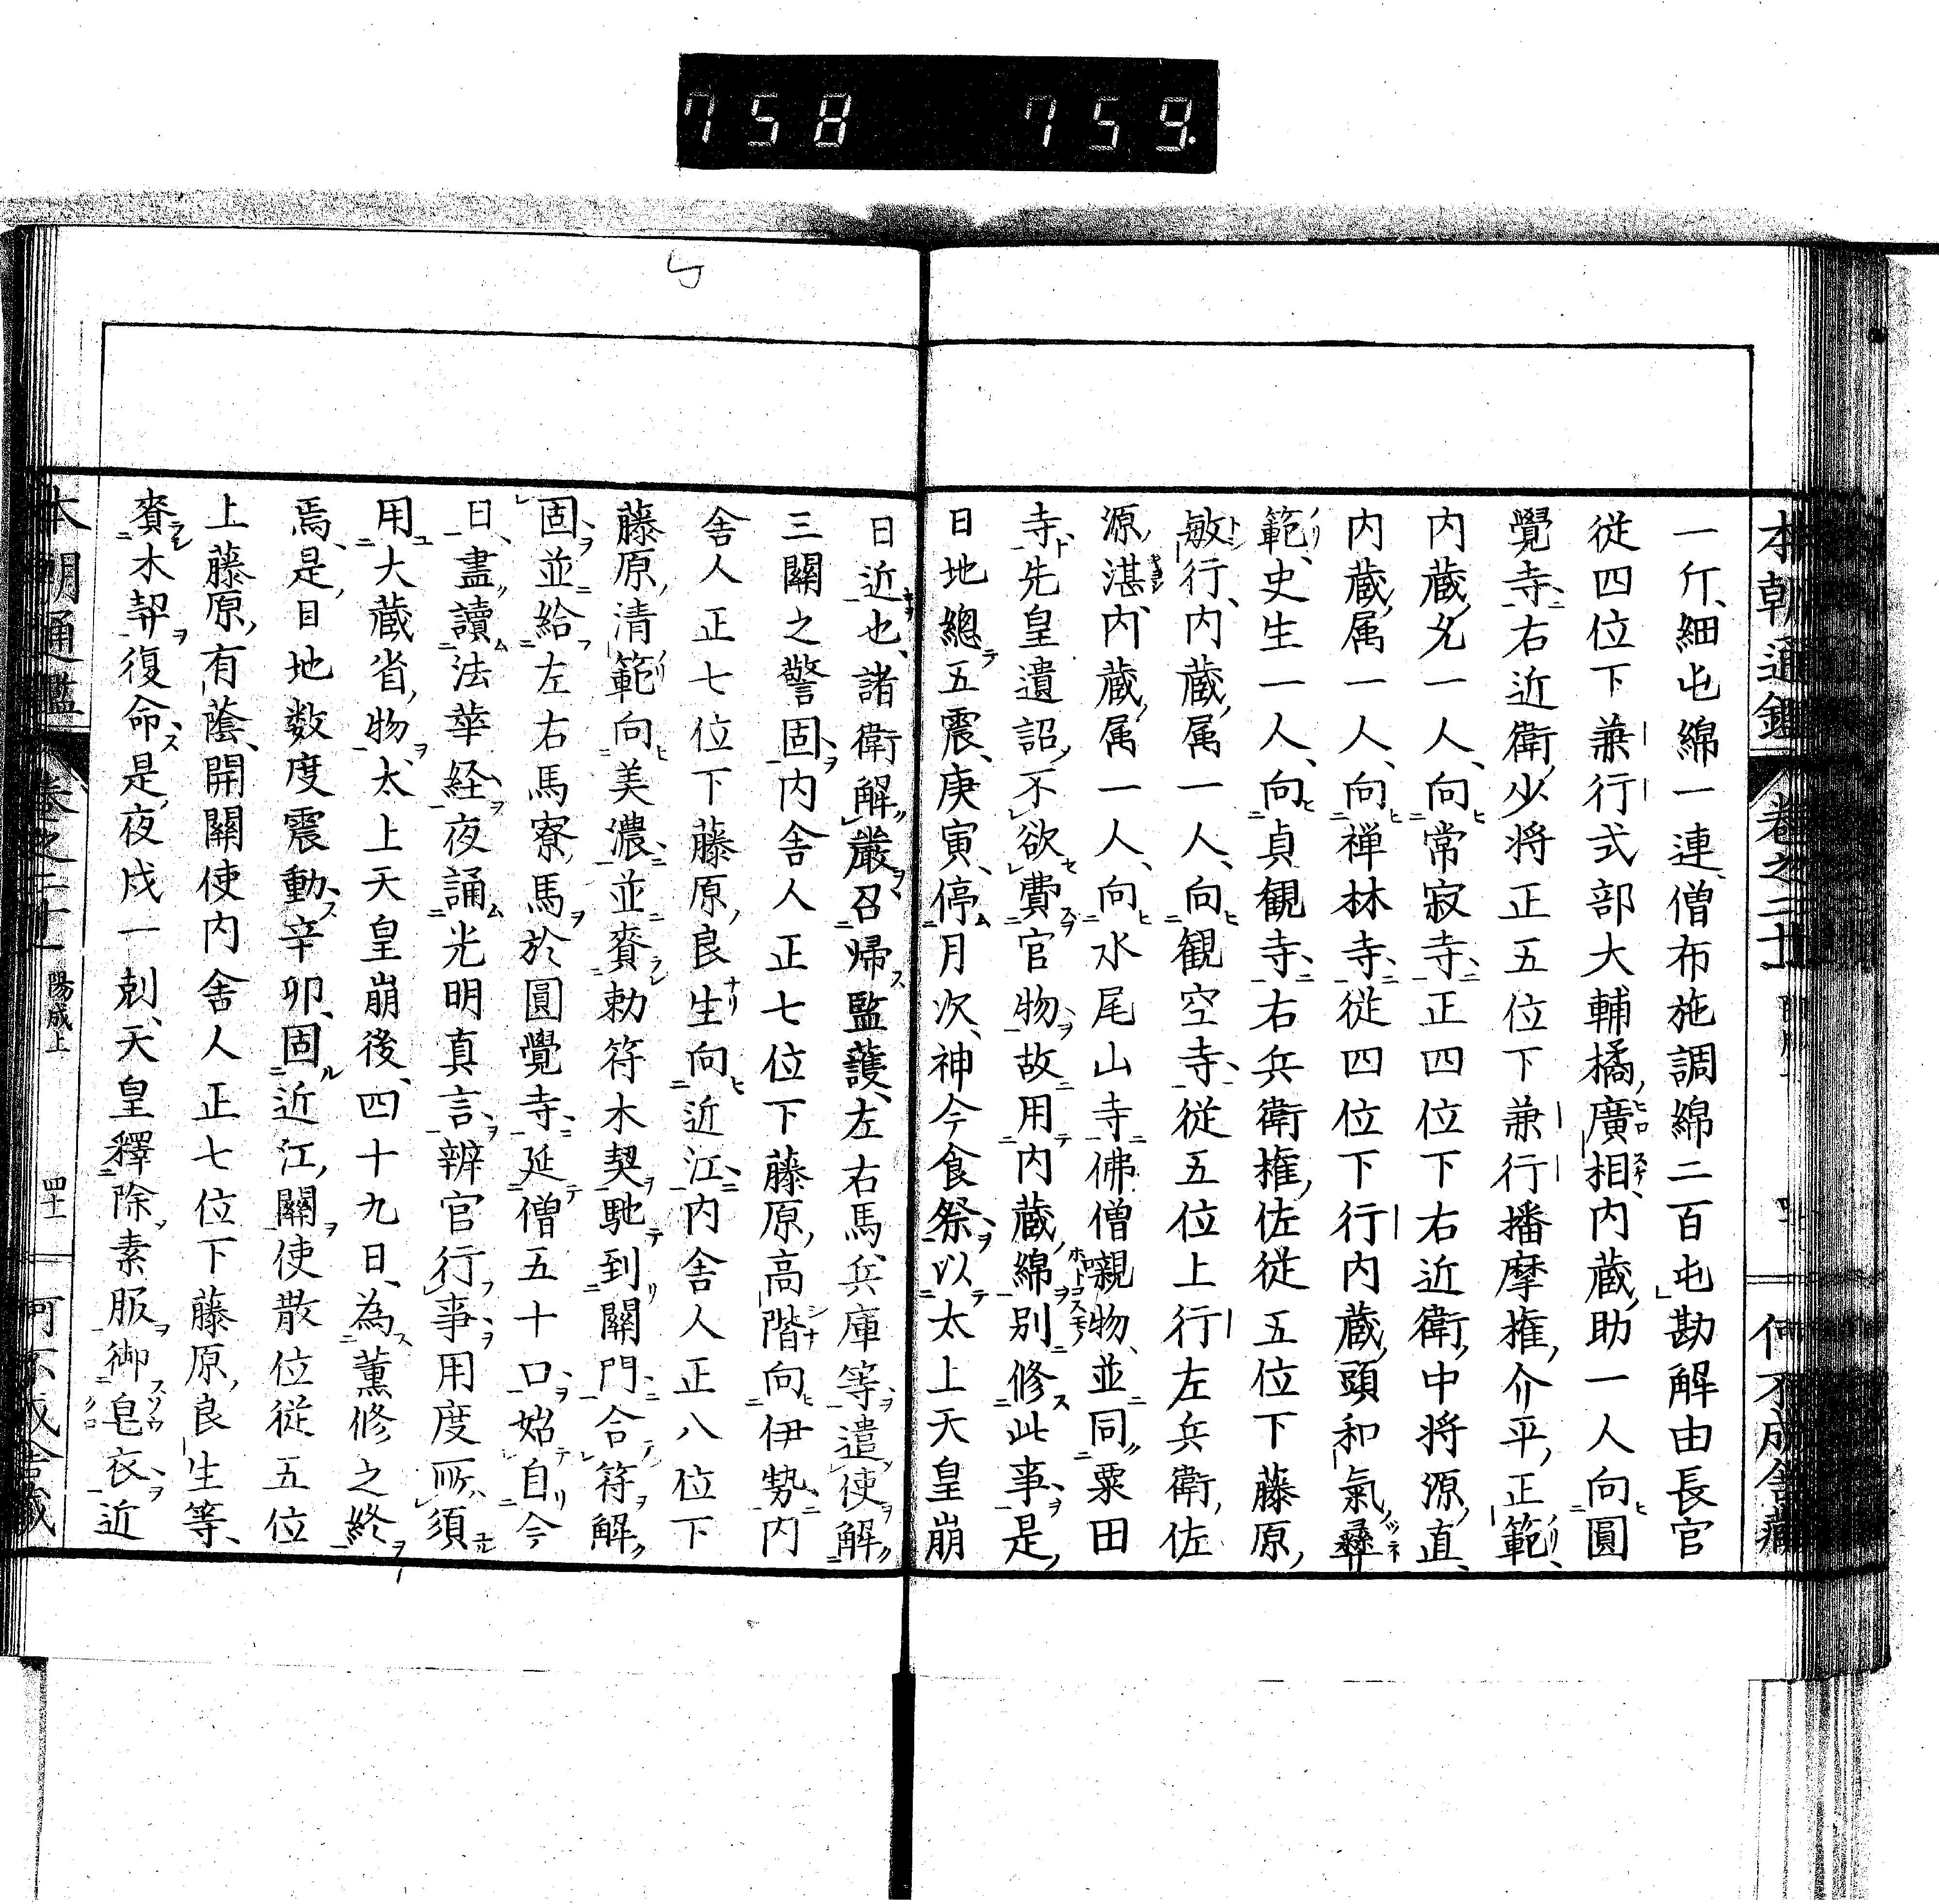 758 759
本朝通鑑 卷之二十 何不成舍藏
一斤、細屯綿一連、僧布施調綿二百屯、勘解由長官
従四位下兼行式部大輔橘廣相、内蔵助一人向圓
覺寺、右近衛少将正五位下兼行播摩權介平正範、
内蔵允一人、向常寂寺、正四位下右近衛中将源直、
内蔵属一人、向禅林寺、従四位下行内蔵頭和氣彝
範、史生一人、向貞観寺、右兵衛權佐従五位下藤原
敏行、内蔵属一人、向観空寺、従五位上行左兵衛佐
源湛、内蔵属一人、向水尾山寺、佛僧嚫物、並同粟田
寺、先皇遺詔、不欲費官物、故用内蔵綿別修此事、是
日地總五震、庚寅、停月次、神今食祭、以太上天皇崩
日近也、諸衛解嚴、召帰監護、左右馬、兵庫等、遣使解
三關之警固、内舎人正七位下藤原高階向伊勢、内
舎人正七位下藤原良生向近江、内舎人正八位下
藤原清範向美濃、並賚勅符木契、馳到關門、合符解
固、並給左右馬寮馬、於圓覺寺、延僧五十口、始自今
日、晝讀法華経、夜誦光明真言、辨官行事、用度所須
用大蔵省物、太上天皇崩後、四十九日、為薫修之終
焉、是日地数度震動、辛卯、固近江關使散位従五位
上藤原有蔭、開關使内舎人正七位下藤原良生等、
賚木契復命、是夜戌一剋、天皇釋除素服、御皂衣、近
本朝通鑑 卷之二十 陽成上 四十一 何不成舍藏